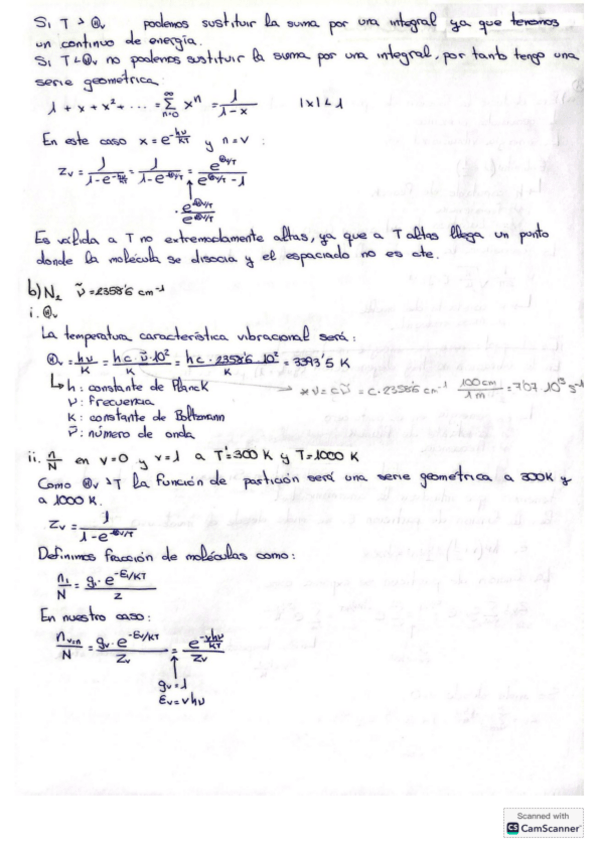 Si T > Θv podemos sustituir la suma por una integral ya que tenemos
un continuo de energía.
Si T < Θv no podemos sustituir la suma por una integral, por tanto tengo una
serie geométrica.
1 + x + x² + ... = Σ_{n=0}^{∞} xⁿ = 1/(1-x) |x| < 1
En este caso x = e^(-hν/KT) y n = v :
Zv = 1/(1-e^(-hν/KT)) = 1/(1-e^(-Θv/T)) = e^(Θv/T)/(e^(Θv/T) - 1)
· e^(Θv/T)/e^(Θv/T)
Es válida a T no extremadamente altas, ya que a T altas llega un punto
donde la molécula se disocia y el espaciado no es cte.
b) N₂ ν̃ = 2358'6 cm⁻¹
i. Θv
La temperatura característica vibracional será:
Θv = hν/K = hc·ν̃·10²/K = hc·2358'6·10²/K = 3393'5 K
↳ h: constante de Planck
* ν = cν̃ = c·2358'6 cm⁻¹ 100cm/1m = 7'07 10¹³ s⁻¹
ν: frecuencia
K: constante de Boltzmann
ν̃: número de onda
ii. n/N en v=0 y v=1 a T=300 K y T=1000 K
Como Θv > T la función de partición será una serie geométrica a 300K y
a 1000 K.
Zv = 1/(1-e^(-Θv/T))
Definimos fracción de moléculas como:
n₁/N = g·e^(-E/KT)/Z
En nuestro caso:
n/N = gv·e^(-Ev/KT)/Zv = e^(-vhν/KT)/Zv
gv = 1
Ev = vhν
Scanned with
CS CamScanner